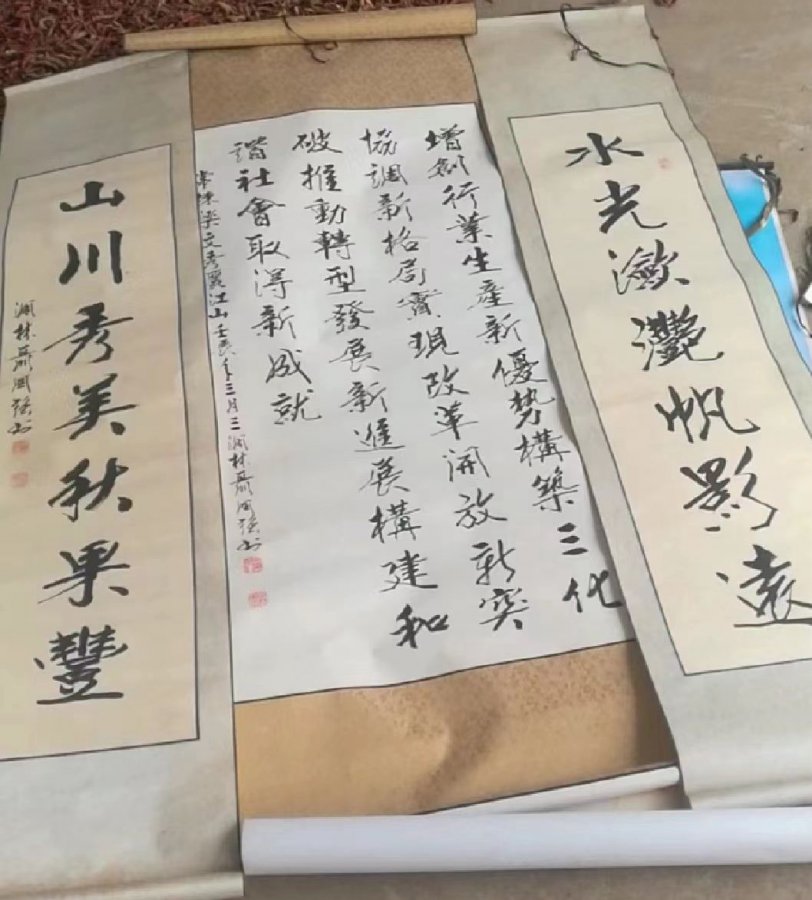 水光瀲灩帆影遠
增創行業生産新優勢構築三化
協調新格局實現改革開放新突
破推動轉型發展新進展構建和
諧社會取得新成就
江山壬辰年三月三澗林聶國強書
山川秀美秋果豐
澗林聶國強書